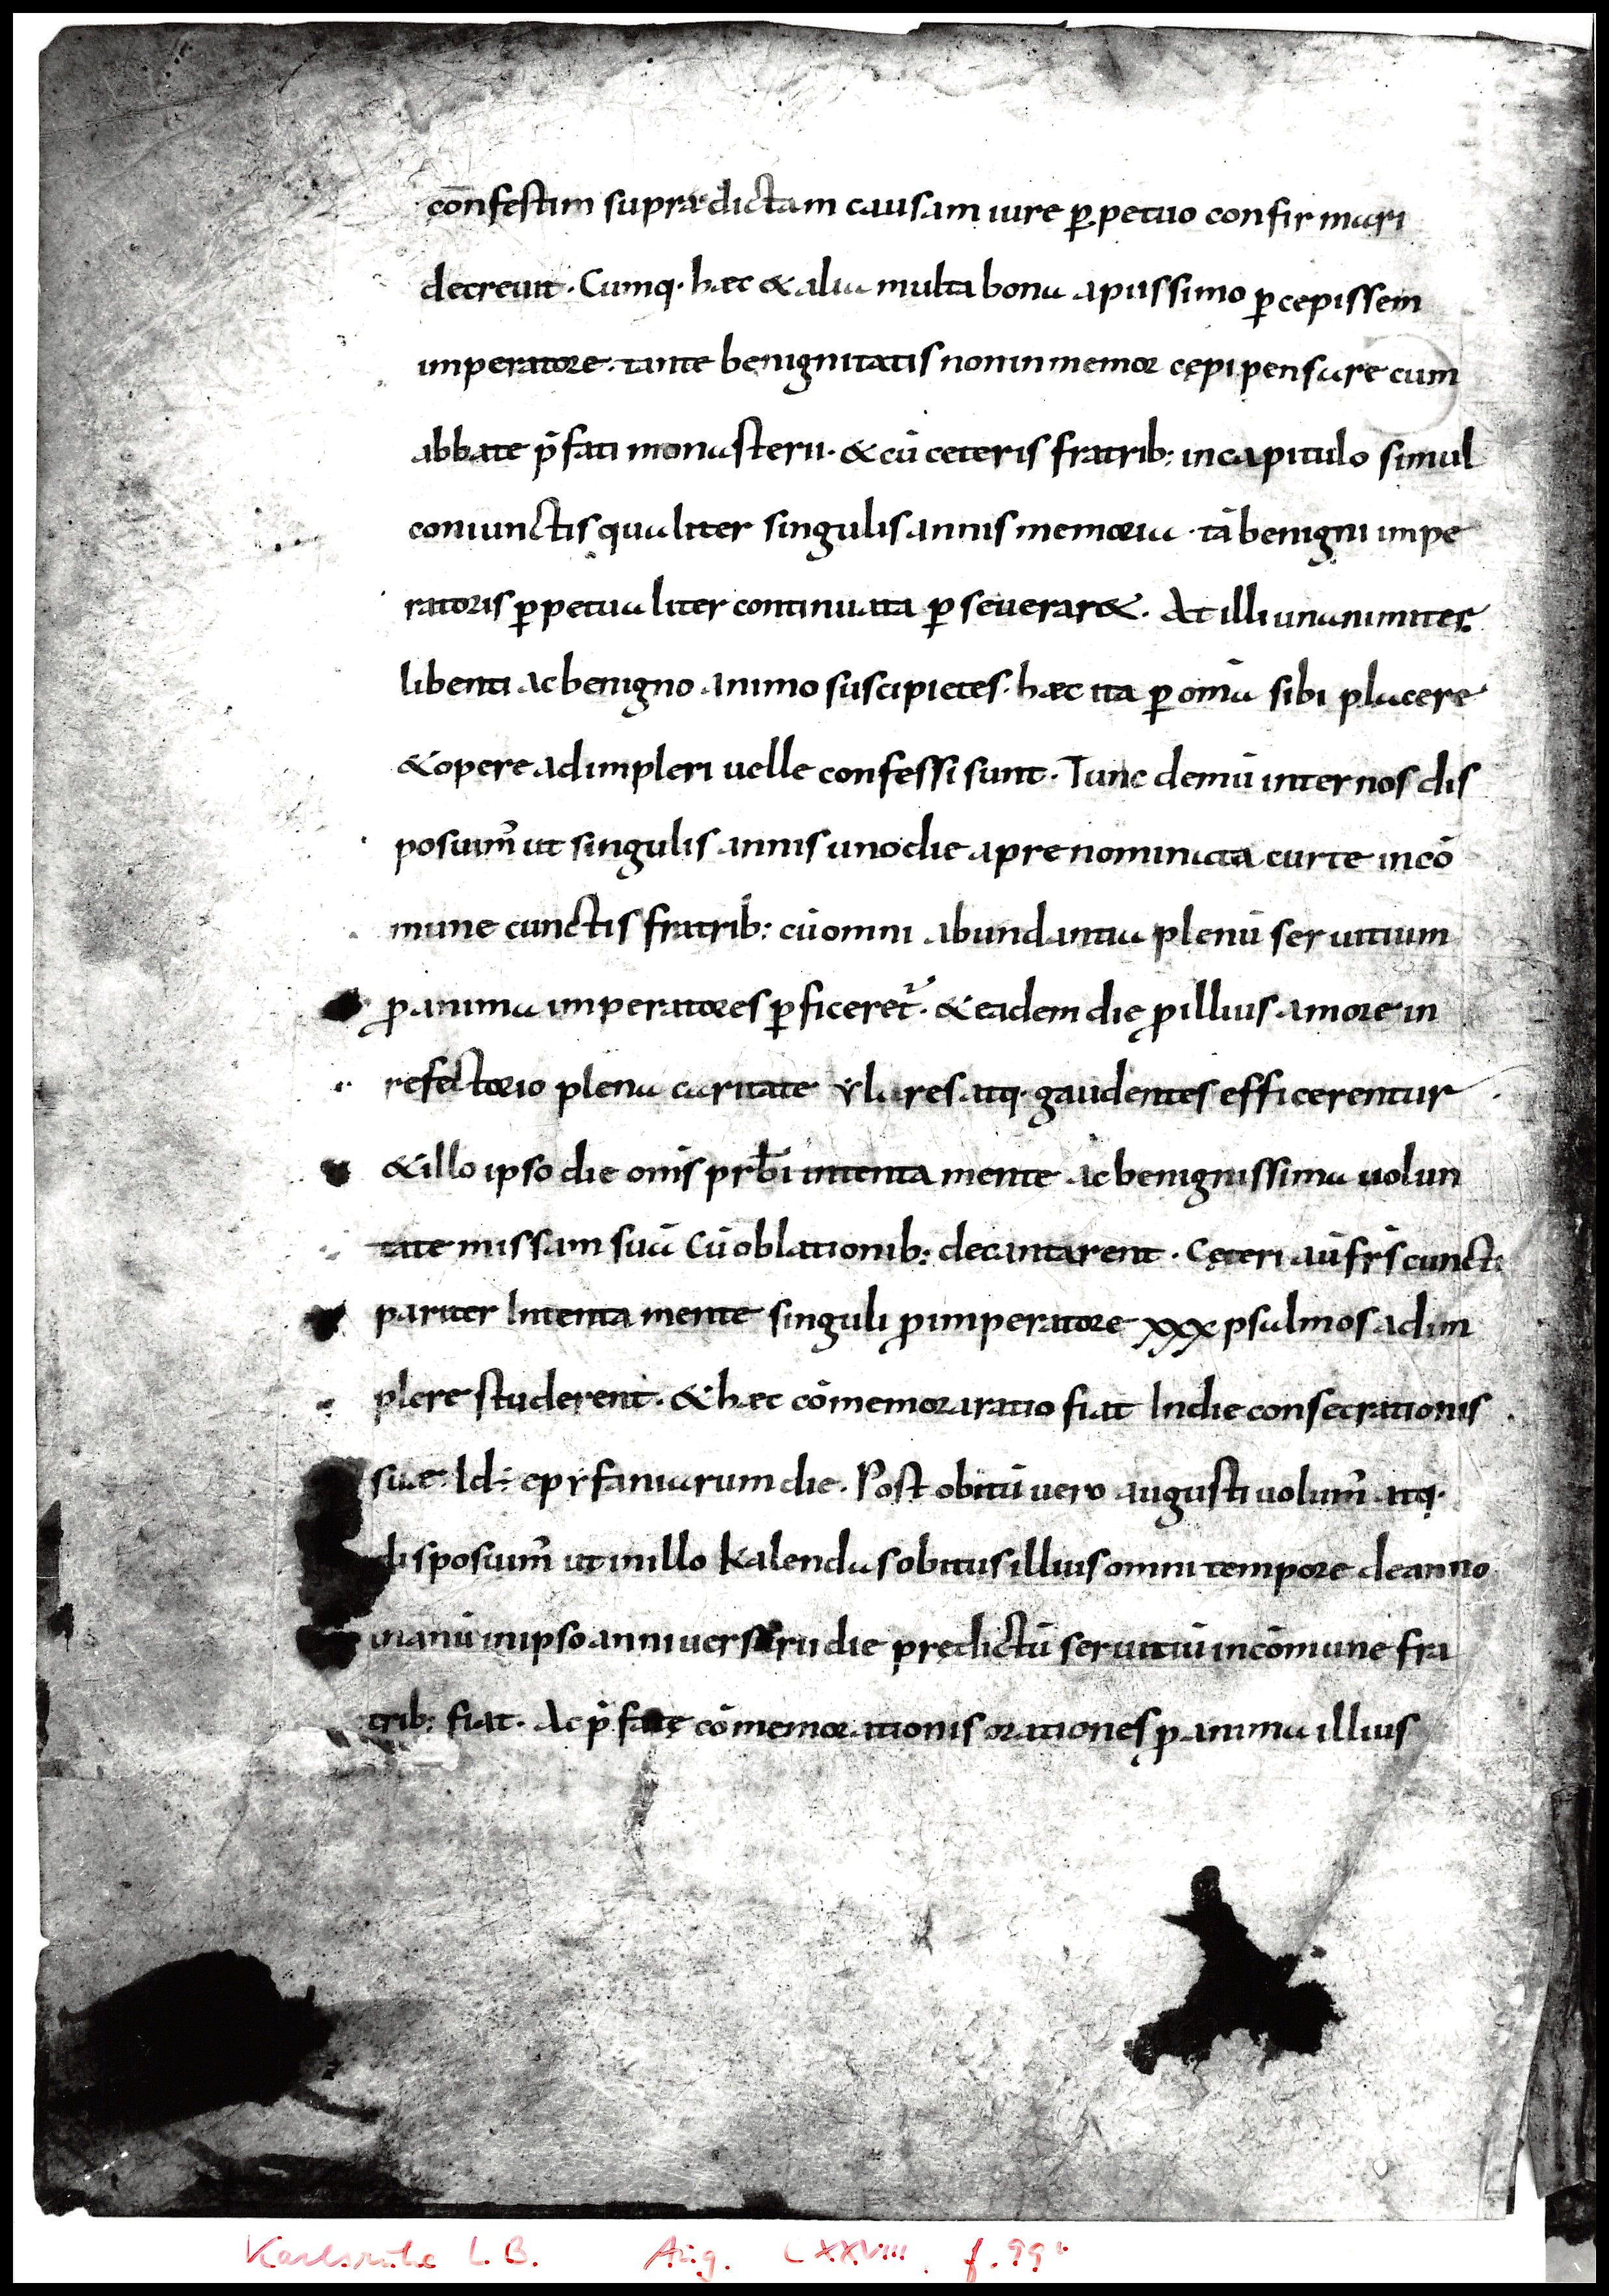 cōnfestim supradictam causam iure ꝑpetuo confirmari
decreuit · Cumq· haec & alia multa bona a piissimo ꝑcepissem
imperatore · tante benignitatis non inmemor cępi pensare cum
abbate p̄fati monasterii · & cū ceteris fratrib: in capitulo simul
coniunctis qualiter singulis annis memoria · tā benigni impe
ratoris ꝑpetualiter continuata ꝑseuerar& · At illi unanimiter
libenti ac benigno animo suscipietes · haec ita ꝑ om̄ia sibi placere
& opere adimpleri uelle confessi sunt · Tunc demū inter nos dis
posuim᾿ ut singulis annis uno die a prenominata curte in cō
mune cunctis fratrib: cū omni abundantia plenū seruitium
ꝓ anima imperatores ꝑficeret᾿ · & eadem die ꝓ illius amore in
refectorio plena caritate ẏlares atq· gaudentes efficerentur
& illo ipso die om̄s prb̄i intenta mente ac benignissima uolun
tate missam suā Cū oblationib: decantarent · Cęteri aū fr̄s cuncti
pariter Intenta mente singuli ꝓ imperatore xxx psalmos adim
plere studerent · & haec cōmemoraratio fiat In die consecrationis
suae · Id ÷ epẏfaniarum die · Post obitū uero augusti uolum᾿ atq·
disposuim᾿ ut in illo kalendas obitus illius omni tempore de anno
in anū in ipso anniuersarii die prędictū seruitiū in cōmune fra
trib: fiat · Ac p̄fatę cōmemorationis orationes ꝓ anima illius
Karlsruhe L.B. Aug. LXXVIII. f. 99v